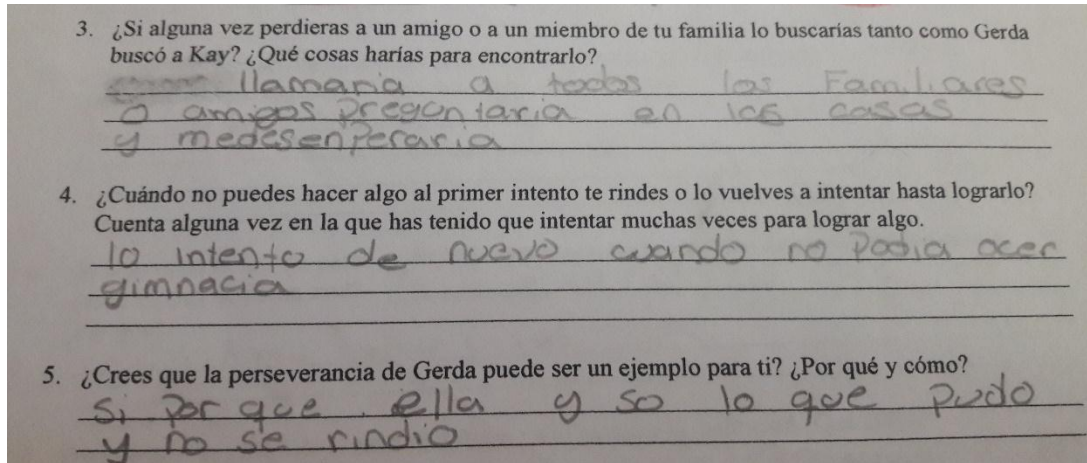 3. ¿Si alguna vez perdieras a un amigo o a un miembro de tu familia lo buscarías tanto como Gerda
buscó a Kay? ¿Qué cosas harías para encontrarlo?
llamaria a todos los Familiares
o amigos pregontaria en los casas
y medesenperaria
4. ¿Cuándo no puedes hacer algo al primer intento te rindes o lo vuelves a intentar hasta lograrlo?
Cuenta alguna vez en la que has tenido que intentar muchas veces para lograr algo.
lo intento de nuevo cuando no podia acer
gimnacia
5. ¿Crees que la perseverancia de Gerda puede ser un ejemplo para ti? ¿Por qué y cómo?
Si por que ella y so lo que pudo
y no se rindio